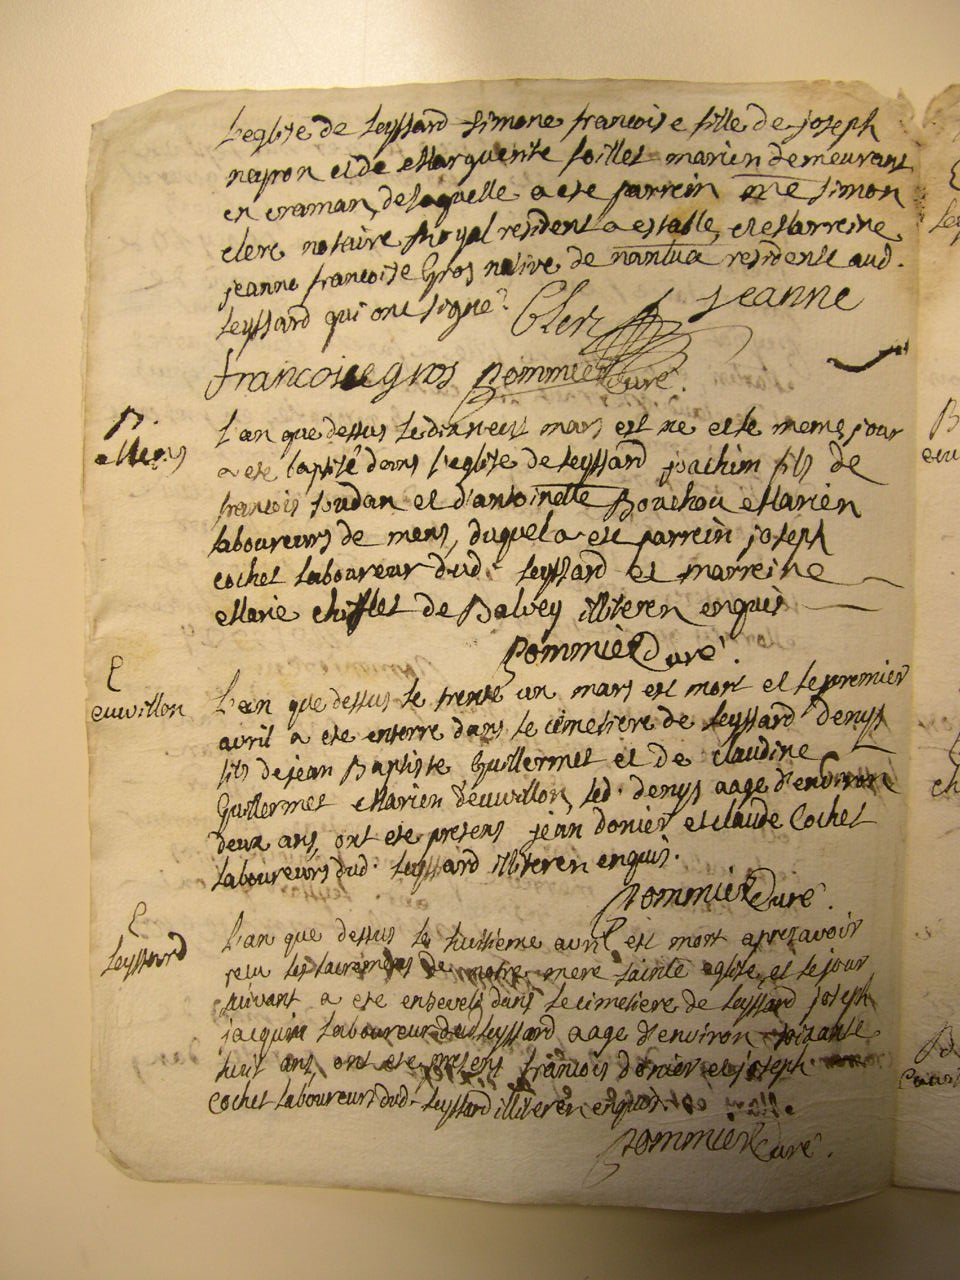 L'eglise de Leyssard Simone francoise fille de joseph
neyron et de Marguerite soillet marien demeurant
en craman, de laquelle a ete parrein me simon
clerc notaire Royal resident a estable, et Marreine
jeanne francoise Gros native de nantua residente aud.
Leyssard qui ont signe. Clerc jeanne
francoise gros pommier Curé.
B.
Mens
L'an que dessus le dixneuf mars est ne et le meme jour
a ete baptisé dans l'eglise de Leyssard joachim fils de
francois joudan et d'antoinette Bouchou Marien
laboureurs de mens, duquel a ete parrein joseph
cochet laboureur dud. Leyssard et marreine
Marie chifflet de Balvey illiteren enquis
Pommier Curé.
E
euwillon
L'an que dessus le trente un mars est mort et le premier
avril a ete enterre dans le cimetiere de Leyssard denys
fils de jean Baptiste Guillermet et de claudine
Guillermet Marien d'euwillon, led. denys aage d'environ
deux ans, ont ete presens jean donier et claude Cochet
laboureurs dud. Leyssard illiteren enquis.
pommier Curé.
E
Leyssard
L'an que dessus le huitieme avril est mort apres avoir
recu les sacremens de notre mere sainte eglise, et le jour
suivant a ete enseveli dans le cimetiere de Leyssard joseph
jacquin laboureur dud Leyssard aage d'environ soixante
huit ans, ont ete presens francois donier et joseph
cochet laboureurs dud. Leyssard illiteren enquis.
pommier Curé.